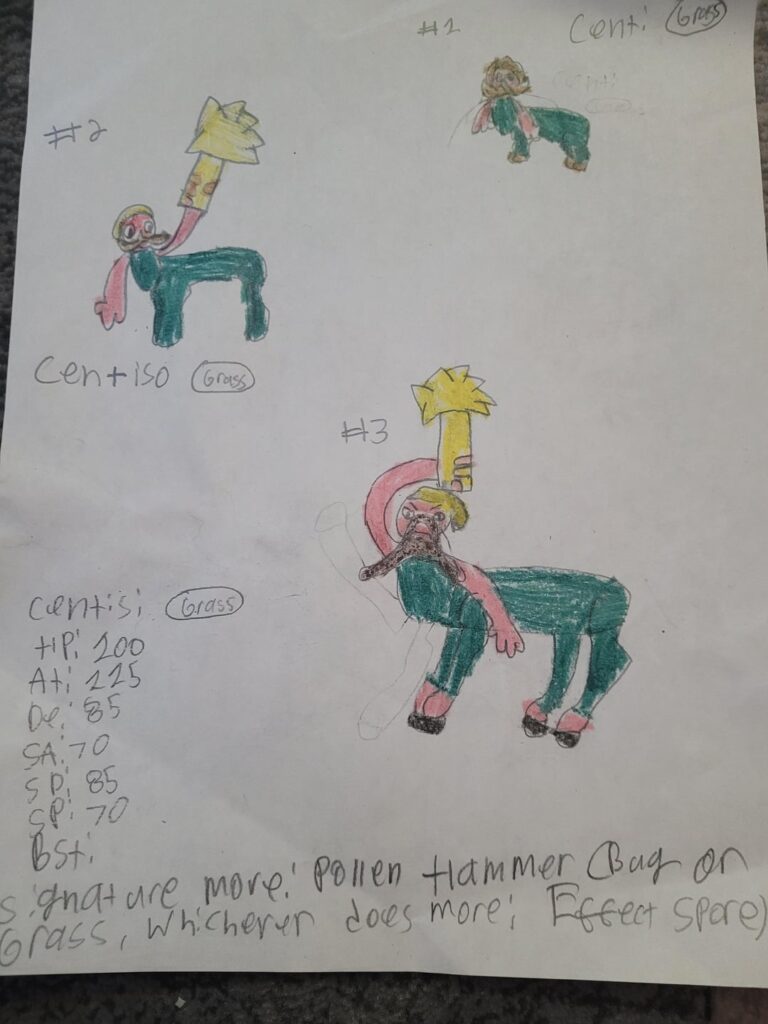 #1
Centi Grass
#2
Centiso Grass
#3
Centisi Grass
HP: 100
At: 125
De: 85
SA: 70
SD: 85
SP: 70
Bst:
signature more: Pollen Hammer (Bug or
Grass, whicherer does more; Effect Spore)